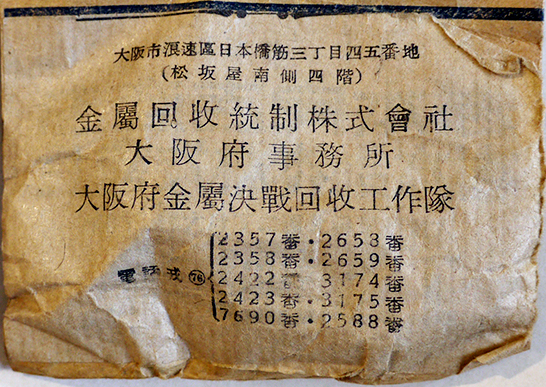 大阪市浪速區日本橋筋三丁目四五番地
(松坂屋南側四階)
金屬回收統制株式會社
大阪府事務所
大阪府金屬決戰回收工作隊
2357番・2658番
2358番・2659番
電話戎(76) 2422番 3174番
2423番・3175番
7690番・2588番